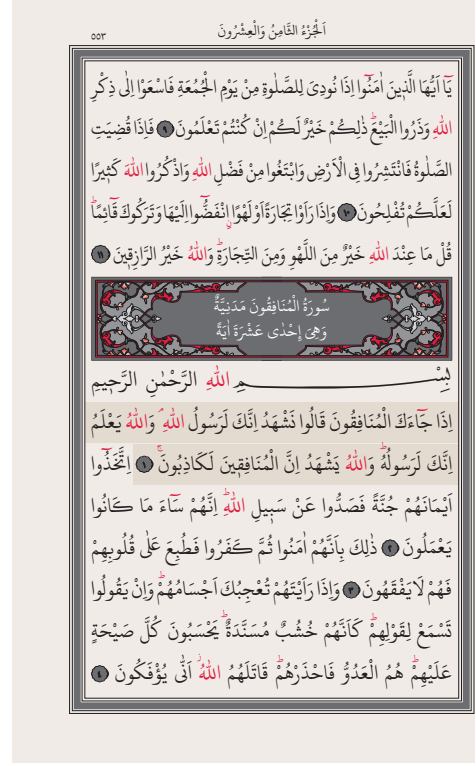 ٥٥٣
اَلْجُزْءُ الثَّامِنُ وَالْعِشْرُونَ
يَٓا اَيُّهَا الَّذ۪ينَ اٰمَنُٓوا اِذَا نُودِيَ لِلصَّلٰوةِ مِنْ يَوْمِ الْجُمُعَةِ فَاسْعَوْا اِلٰى ذِكْرِ
اللّٰهِ وَذَرُوا الْبَيْعَۜ ذٰلِكُمْ خَيْرٌ لَكُمْ اِنْ كُنْتُمْ تَعْلَمُونَ ﴿٩﴾ فَاِذَا قُضِيَتِ
الصَّلٰوةُ فَانْتَشِرُوا فِي الْاَرْضِ وَابْتَغُوا مِنْ فَضْلِ اللّٰهِ وَاذْكُرُوا اللّٰهَ كَث۪يرًا
لَعَلَّكُمْ تُفْلِحُونَ ﴿١٠﴾ وَاِذَا رَاَوْا تِجَارَةً اَوْ لَهْوًاۨ انْفَضُّٓوا اِلَيْهَا وَتَرَكُوكَ قَٓائِمًاۜ
قُلْ مَا عِنْدَ اللّٰهِ خَيْرٌ مِنَ اللَّهْوِ وَمِنَ التِّجَارَةِۜ وَاللّٰهُ خَيْرُ الرَّازِق۪ينَ ﴿١١﴾
سُورَةُ الْمُنَافِقُونَ مَدَنِيَّةٌ
وَهِيَ اِحْدٰى عَشْرَةَ اٰيَةً
بِسْمِ اللّٰهِ الرَّحْمٰنِ الرَّح۪يمِ
اِذَا جَٓاءَكَ الْمُنَافِقُونَ قَالُوا نَشْهَدُ اِنَّكَ لَرَسُولُ اللّٰهِۢ وَاللّٰهُ يَعْلَمُ
اِنَّكَ لَرَسُولُهُۜ وَاللّٰهُ يَشْهَدُ اِنَّ الْمُنَافِق۪ينَ لَكَاذِبُونَۚ ﴿١﴾ اِتَّخَذُٓوا
اَيْمَانَهُمْ جُنَّةً فَصَدُّوا عَنْ سَب۪يلِ اللّٰهِۜ اِنَّهُمْ سَٓاءَ مَا كَانُوا
يَعْمَلُونَ ﴿٢﴾ ذٰلِكَ بِاَنَّهُمْ اٰمَنُوا ثُمَّ كَفَرُوا فَطُبِعَ عَلٰى قُلُوبِهِمْ
فَهُمْ لَا يَفْقَهُونَ ﴿٣﴾ وَاِذَا رَاَيْتَهُمْ تُعْجِبُكَ اَجْسَامُهُمْۜ وَاِنْ يَقُولُوا
تَسْمَعْ لِقَوْلِهِمْۜ كَاَنَّهُمْ خُشُبٌ مُسَنَّدَةٌۜ يَحْسَبُونَ كُلَّ صَيْحَةٍ
عَلَيْهِمْۜ هُمُ الْعَدُوُّ فَاحْذَرْهُمْۜ قَاتَلَهُمُ اللّٰهُۘ اَنّٰى يُؤْفَكُونَ ﴿٤﴾